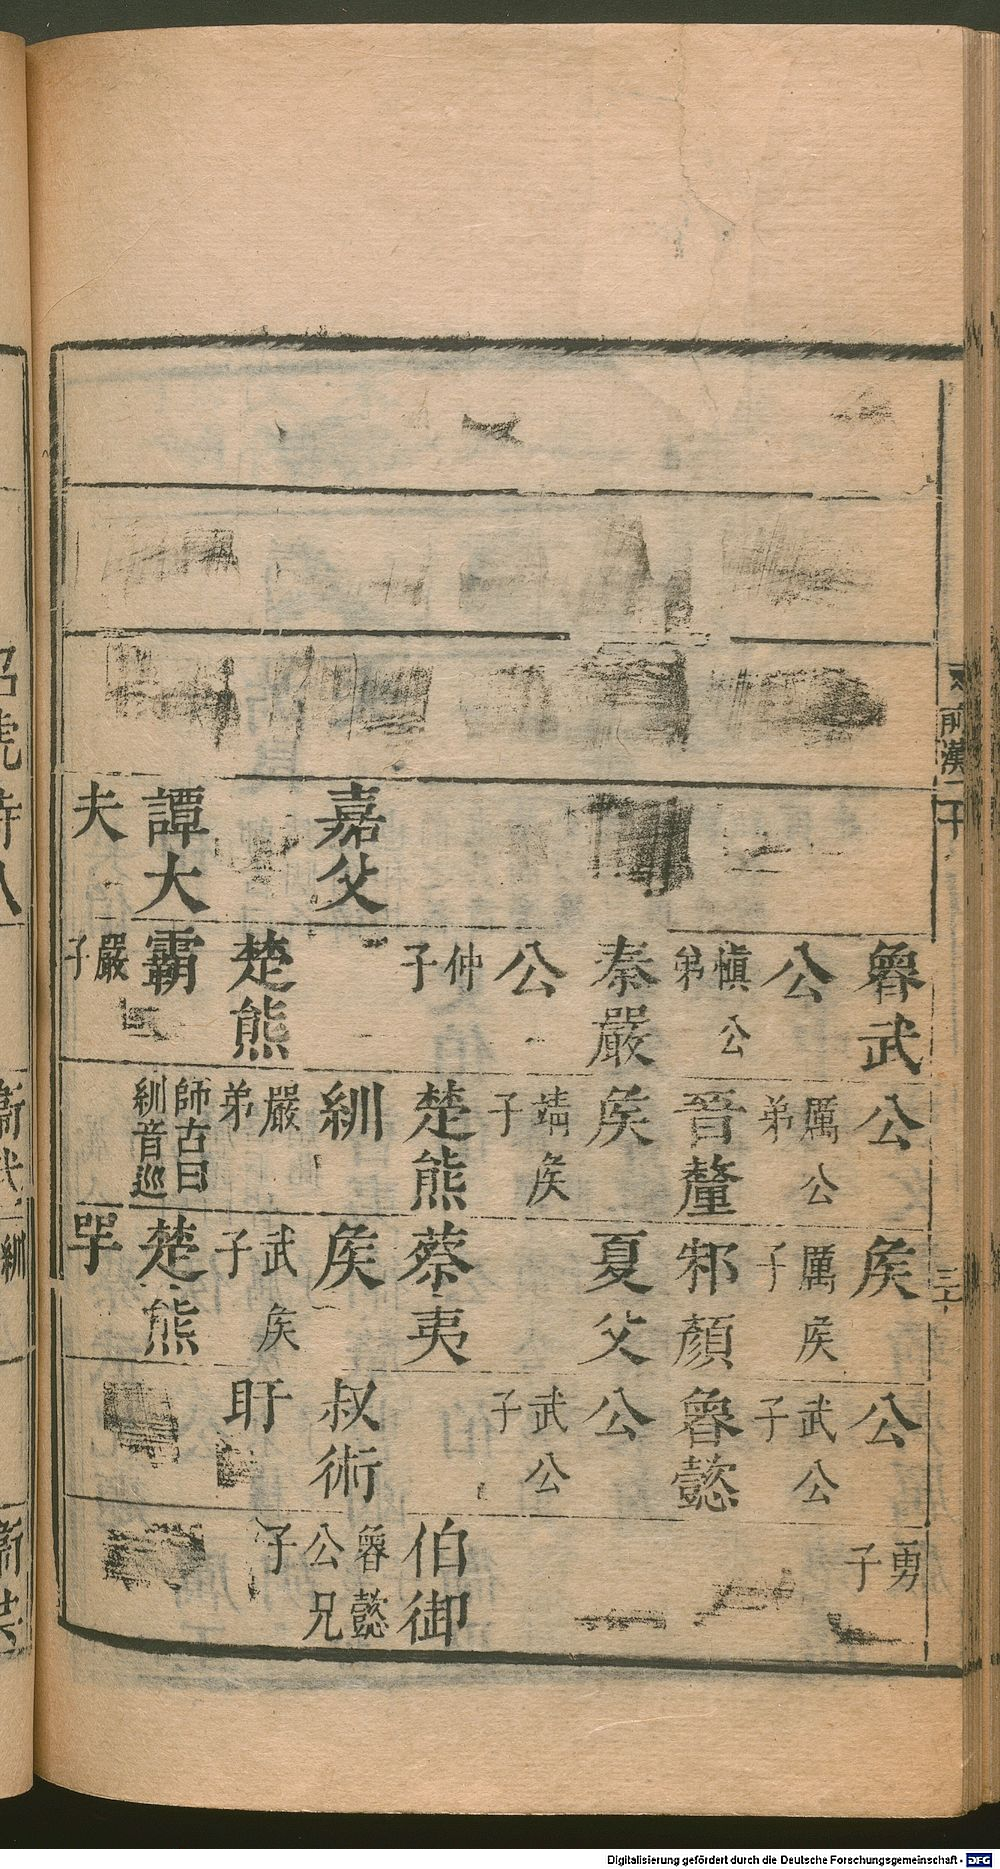 嘉父
譚大
夫
魯武
公
慎公
弟
秦嚴
公
仲
子
楚熊
霸
嚴
子
公
厲公
弟
晉釐
矦
靖矦
子
楚熊
紃
嚴
弟
師古曰
紃音巡
矦
厲矦
子
邾顏
夏父
蔡夷
矦
武矦
子
楚熊
咢
公
武公
子
魯懿
公
武公
子
叔術
盱
勇
子
伯御
魯懿
公兄
子
前漢二十
三十
Digitalisierung gefördert durch die Deutsche Forschungsgemeinschaft - DFG